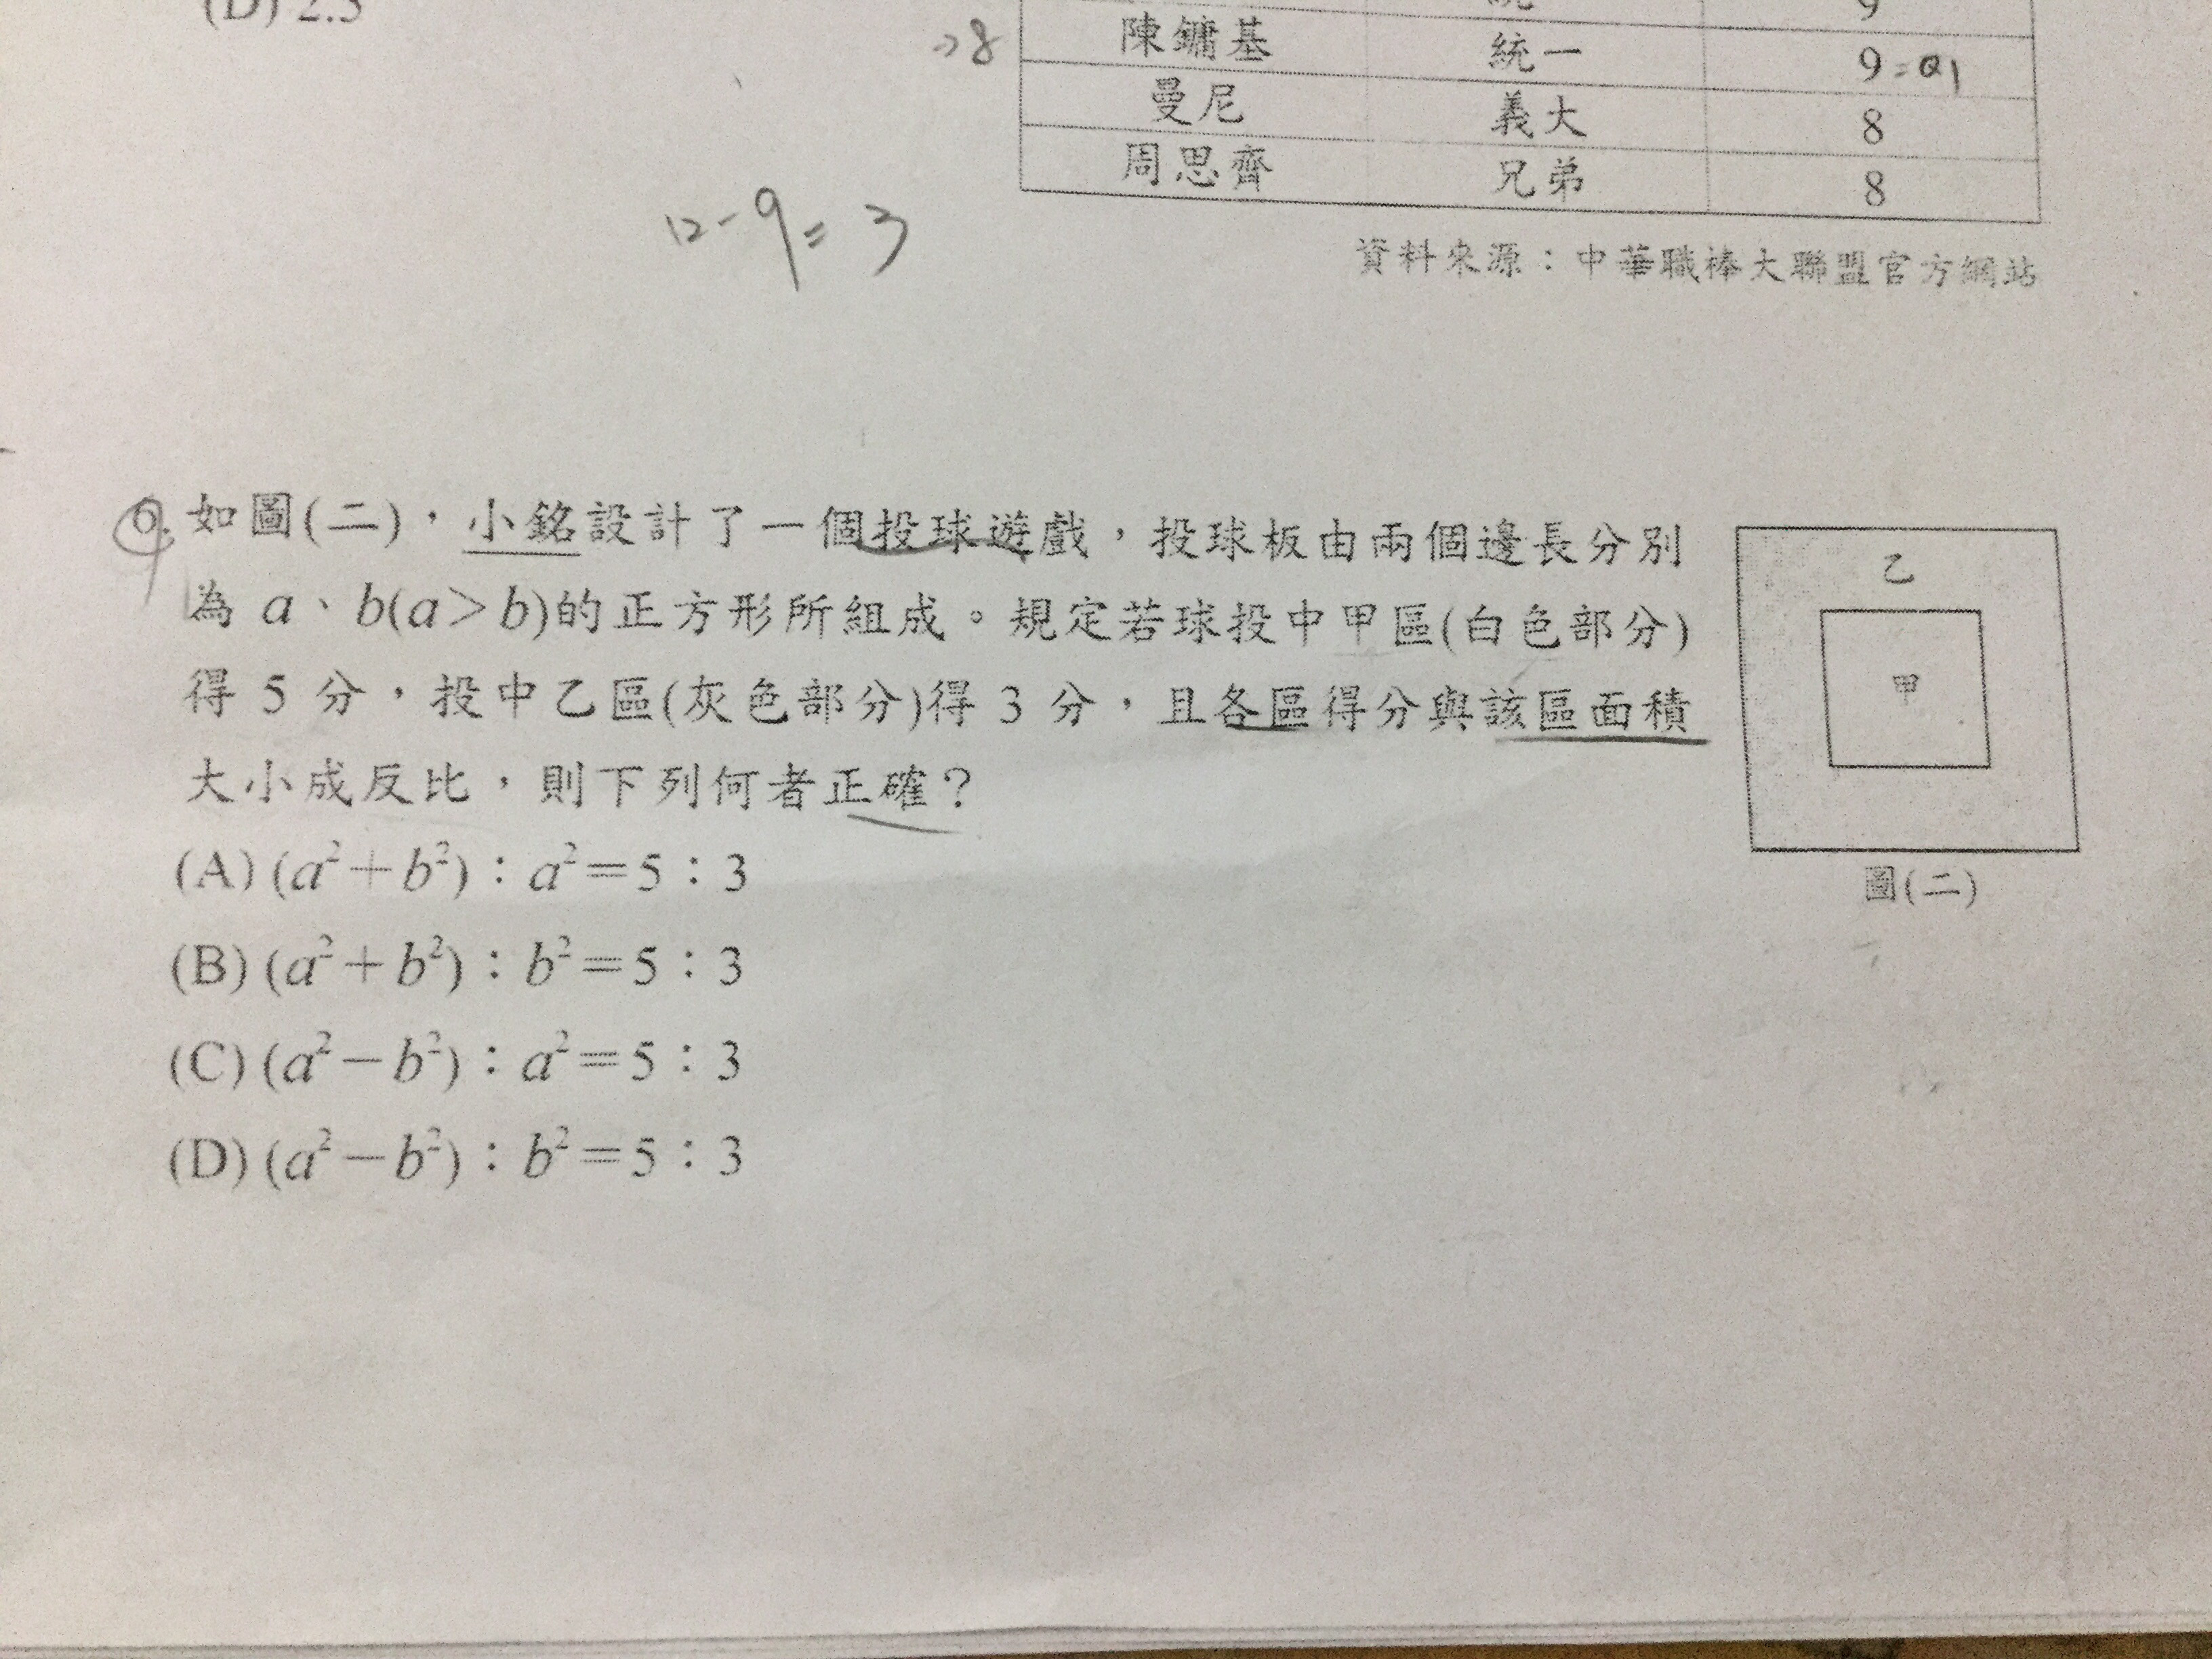 (D) 2.5
9
→8 陳鏞基 統一 9=Q1
曼尼 義大 8
周思齊 兄弟 8
12-9=3
資料來源：中華職棒大聯盟官方網站
6.如圖(二)，小銘設計了一個投球遊戲，投球板由兩個邊長分別
為 a、b(a＞b)的正方形所組成。規定若球投中甲區(白色部分)
得 5 分，投中乙區(灰色部分)得 3 分，且各區得分與該區面積
大小成反比，則下列何者正確？
(A)(a²＋b²)：a²＝5：3
(B)(a²＋b²)：b²＝5：3
(C)(a²－b²)：a²＝5：3
(D)(a²－b²)：b²＝5：3
乙
甲
圖(二)